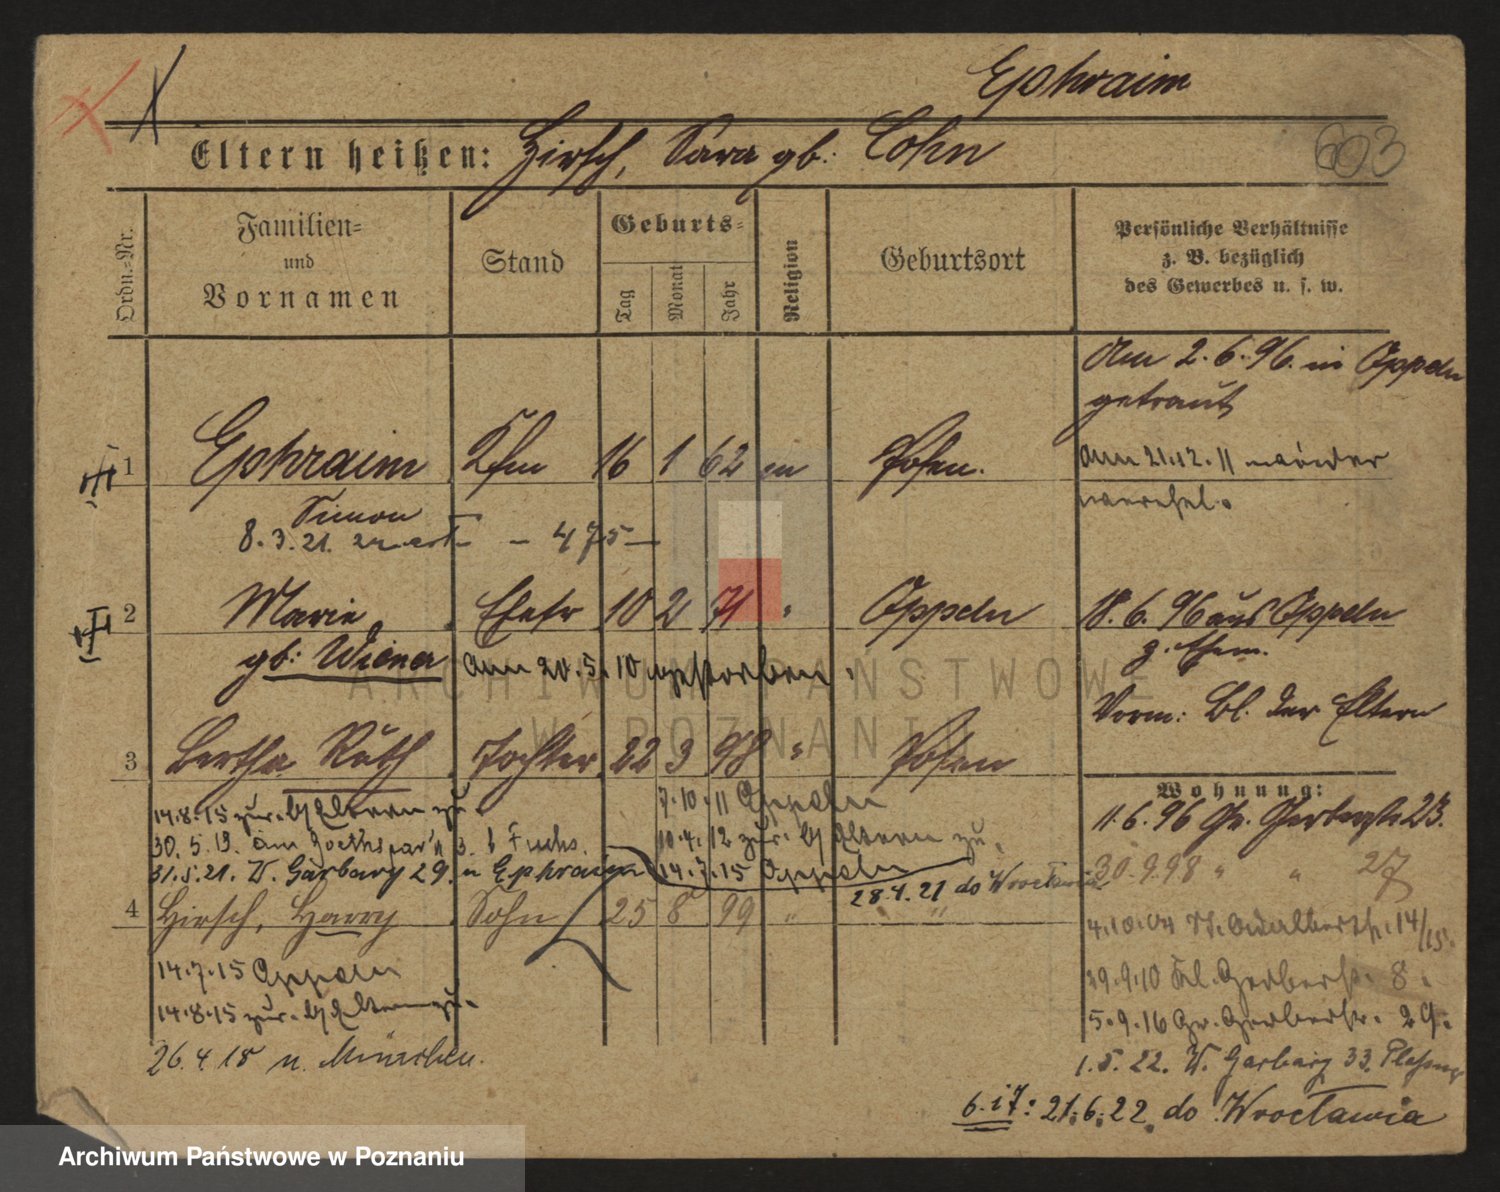 Ephraim
Eltern heißen: Hirsch, Sara gb. Cohn
603
Ordn.-Nr.
Familien-
und
Vornamen
Stand
Geburts-
Tag
Monat
Jahr
Religion
Geburtsort
Persönliche Verhältnisse
z. B. bezüglich
des Gewerbes u. s. w.
Am 2.6.96. in Oppeln
getraut
1 Ephraim Kfm 16 1 62 m Posen.
Am 21.12.11 wieder
Simon
8.3.21. - 475 -
2 Marie Ehefr 10 2 71 " Oppeln
18.6.96 aus Oppeln
gb: Wiener
z. Ehem.
am 20.5.10 gestorben.
ARCHIWUM PAŃSTWOWE
W POZNANIU
Vorm: Bl. der Eltern
3 Bertha Ruth Tochter 22 3 98 " Posen
Wohnung:
14.8.15 zur. b/ Eltern zu
7.10.11 Oppeln
11.6.96 Gr. Gerberstr 23.
30.5.19. am 3. b Fuchs.
10.4.12 zur. b/ Eltern zu.
31.5.21. W. Garbary 29. u Ephraim
14.7.15 Oppeln
30.9.98 " " 27
28.4.21 do Wrocławia
4 Hirsch, Harry Sohn 25 8 99 " "
4.10.04 St. Adalbertstr. 14/15.
14.7.15 Oppeln
29.9.10 Kl. Gerberstr. 8.
14.8.15 zur. b/ Eltern zu.
5.9.16 Gr. Gerberstr. 29.
26.4.18 n. München.
1.5.22. W. Garbary 33.
6. i 7: 21.6.22. do Wrocławia
Archiwum Państwowe w Poznaniu